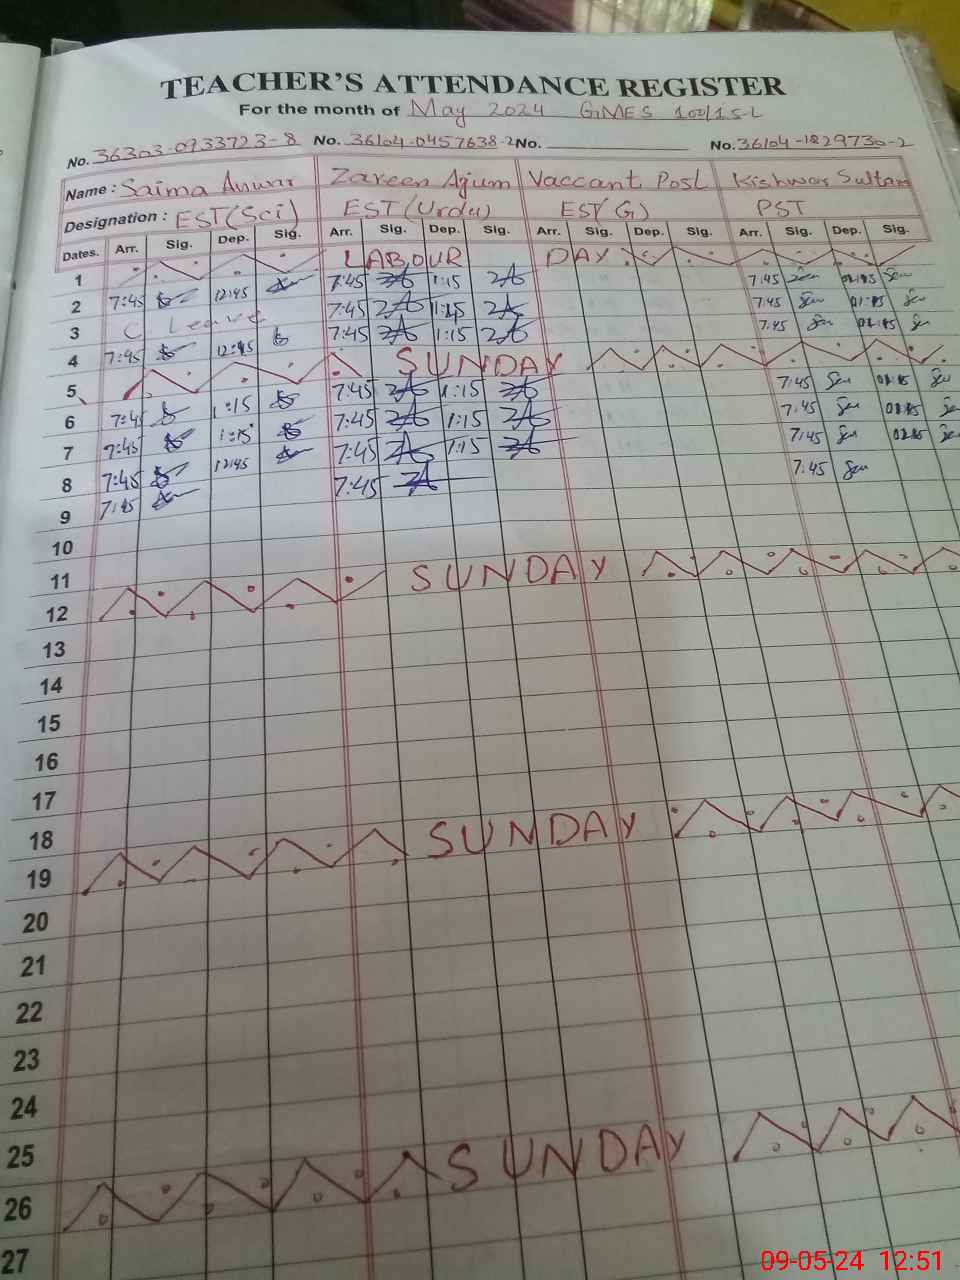 TEACHER'S ATTENDANCE REGISTER
For the month of May 2024 GMES 100/15-L
No. 36303-0733723-8 No. 36104-0457638-2 No. No. 36104-1829730-2
Name : Saima Anwar Zareen Agum Vaccant Post Kishwar Sultan
Designation : EST(Sci) EST(Urdu) EST(G) PST
Dates. Arr. Sig. Dep. Sig. Arr. Sig. Dep. Sig. Arr. Sig. Dep. Sig. Arr. Sig. Dep. Sig.
1 LABOUR DAY
2 7:45 12:45 7:45 1:15 7:45 01:15
3 C Leave 7:45 1:15 7:45 01:15
4 7:45 12:45 7:45 1:15 7:45 01:15
5 SUNDAY
6 7:45 1:15 7:45 1:15 7:45 01:15
7 7:45 1:15 7:45 1:15 7:45 01:15
8 7:45 12:45 7:45 1:15 7:45 01:15
9 7:45 7:45 7:45
10
11
12 SUNDAY
13
14
15
16
17
18
19 SUNDAY
20
21
22
23
24
25
26 SUNDAY
27
09-05-24 12:51